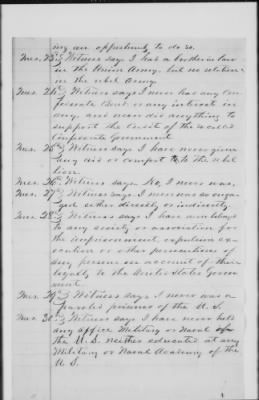 my an opportunity to do so.
Ques. 23d Witness says I had a brother in law
in the Union Army, but no relation
in the rebel Army.
Ques. 24th Witness says I never had any Con-
federate bond or any interest in
any, and never did anything to
support the credit of the so called
Confederate Government.
Ques. 25th Witness says I have never given
any aid or comfort to to the rebel
lion.
Ques. 26th Witness says. No, I never was.
Ques. 27th Witness says I never was so enga
ged either directly or indirectly.
Ques. 28th Witness says I have never belonged
to any society or association for
the imprisonment, expulsion ex
ecution or other persecutions of
any person on account of their
loyalty to the United States Govern
ment.
Ques. 29th Witness says I never was a
Paroled prisoner of the U. S.
Ques. 30th Witness says I have never held
any office Military or Naval
the U. S. neither educated at any
Military or Naval Academy of the
U. S.